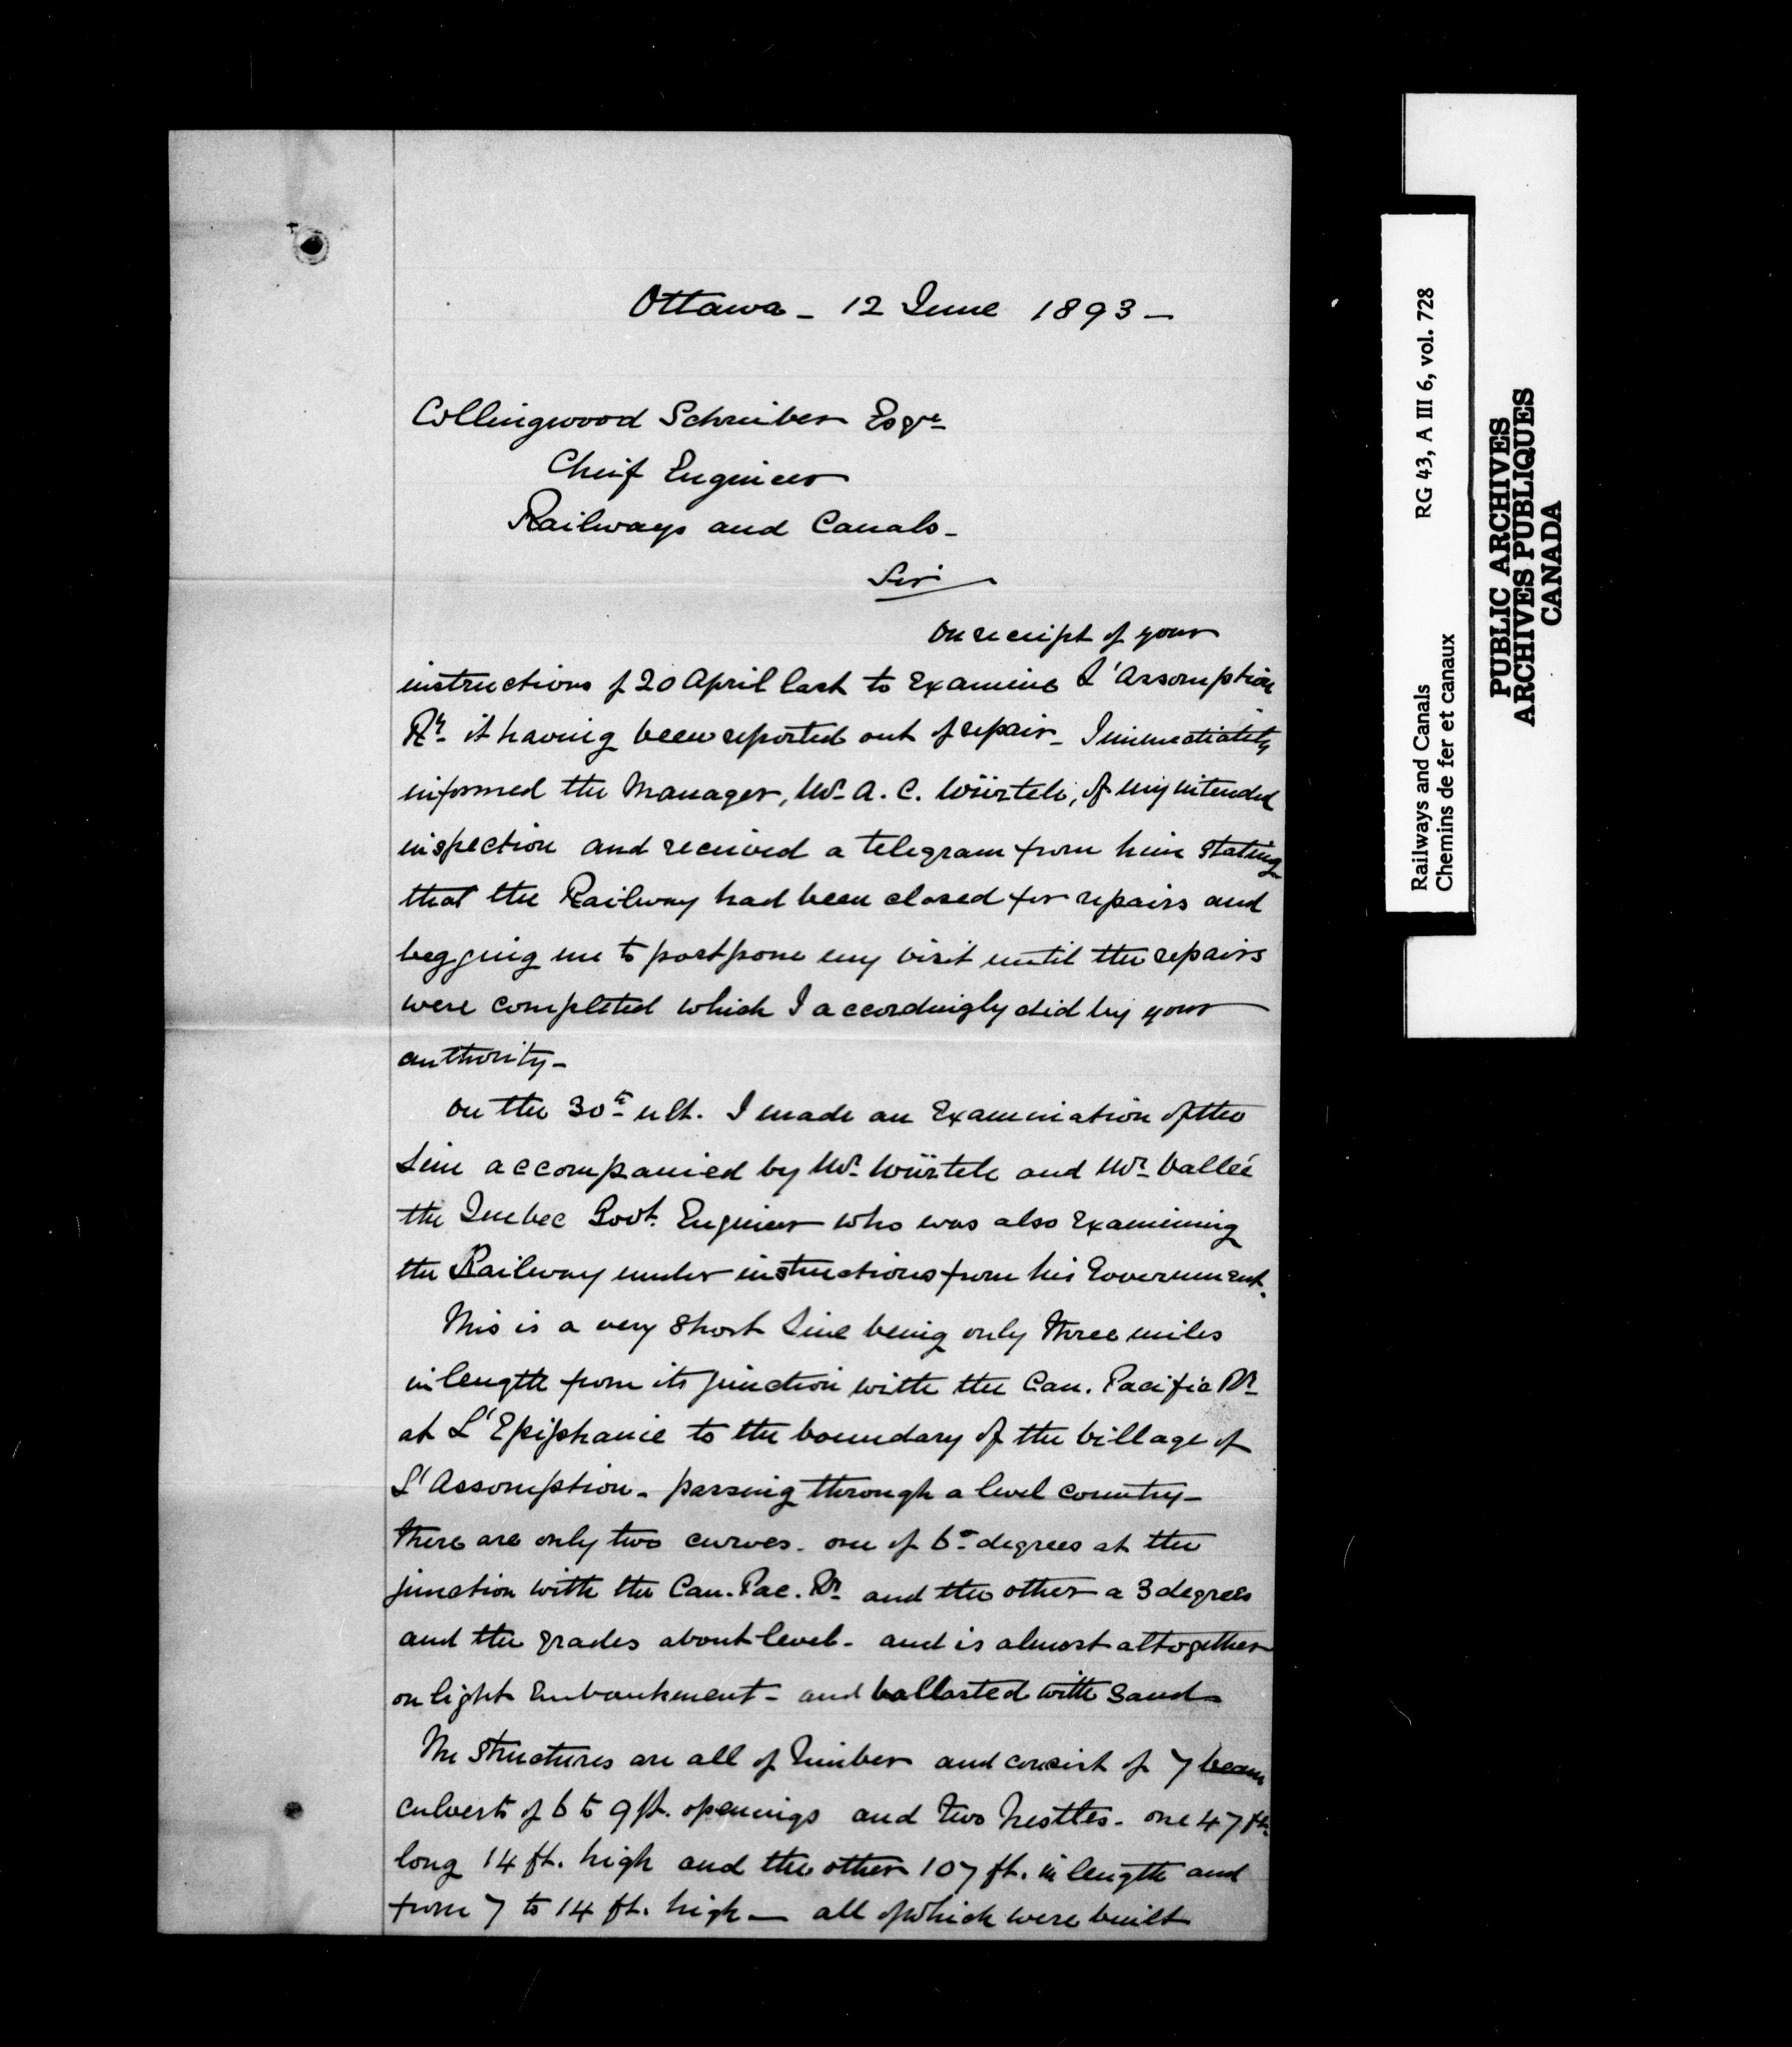 Ottawa - 12 June 1893 -
Collingwood Schreiber Esqre
Chief Engineer
Railways and Canals -
Sir
On receipt of your
instructions of 20 April last to examine L'Assomption
Ry. it having been reported out of repair - I immediately
informed the Manager, Mr. A. C. Würtele, of my intended
inspection and received a telegram from him stating
that the Railway had been closed for repairs and
begging me to postpone my visit until the repairs
were completed which I accordingly did by your
authority -
On the 30th ult. I made an Examination of the
Line accompanied by Mr. Würtele and Mr. Vallée
the Quebec Govt. Engineer who was also Examining
the Railway under instructions from his Government.
This is a very short Line being only three miles
in length from its junction with the Can. Pacific Ry.
at L'Epiphanie to the boundary of the Village of
L'Assomption - passing through a level country -
there are only two curves - one of 6° degrees at the
junction with the Can. Pac. Ry. and the other a 3 degrees
and the grades about level - and is almost altogether
on light Embankment - and ballasted with sand -
The structures are all of Timber and consist of 7 beam
culverts of 6 to 9 ft. openings and two trestles - one 47 ft.
long 14 ft. high and the other 107 ft. in length and
from 7 to 14 ft. high - all of which were built
Railways and Canals RG 43, A III 6, vol. 728
Chemins de fer et canaux
PUBLIC ARCHIVES
ARCHIVES PUBLIQUES
CANADA